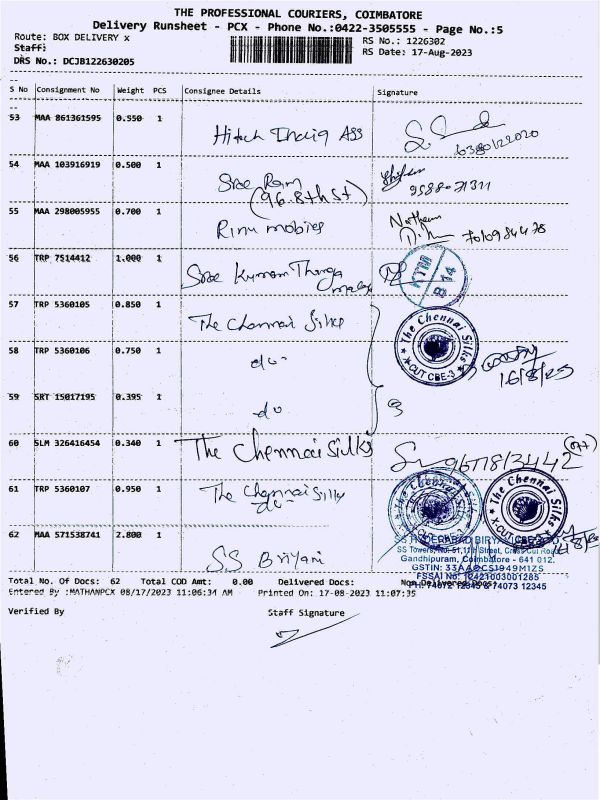 THE PROFESSIONAL COURIERS, COIMBATORE
Delivery Runsheet - PCX - Phone No.:0422-3505555 - Page No.:5
Route: BOX DELIVERY x
RS No.: 1226302
Staff:
RS Date: 17-Aug-2023
DRS No.: DCJB122630205
S No Consignment No Weight PCS Consignee Details Signature
53 MAA 861361595 0.550 1
Hitech India Ass
6380122020
54 MAA 103916919 0.500 1
Sree Ram
(96.8th St)
9588071311
55 MAA 298005955 0.700 1
Rinu mobies
56 TRP 7514412 1.000 1
Sree Kumaran Thanga
KTM
B 14
57 TRP 5360105 0.850 1
The Chennai Silks
The Chennai Silks
OUT CBE-3
58 TRP 5360106 0.750 1
do
16/8/23
59 SRT 15017195 0.395 1
do
60 SLM 326416454 0.340 1
The Chennai Silks
61 TRP 5360107 0.950 1
The Chennai Silks
do
The Chennai Silks
62 MAA 571538741 2.800 1
SS Briyani
SS HYDERABAD BIRYANI
SS Towers, No: 51, 11th Street, Cross Cut Road
Gandhipuram, Coimbatore - 641 012.
FSSAI No: 12421003001285
PH: 74072 12345 & 74073 12345
Total No. Of Docs: 62 Total COD Amt: 0.00 Delivered Docs: Non Delivered Docs:
Entered By :MATHANPCX 08/17/2023 11:06:34 AM Printed On: 17-08-2023 11:07:35
Verified By Staff Signature